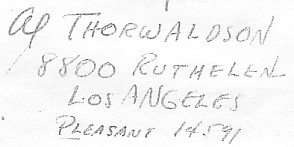 Al THORWALDSON
8800 RUTHELEN
LOS ANGELES
PLEASANT 14591